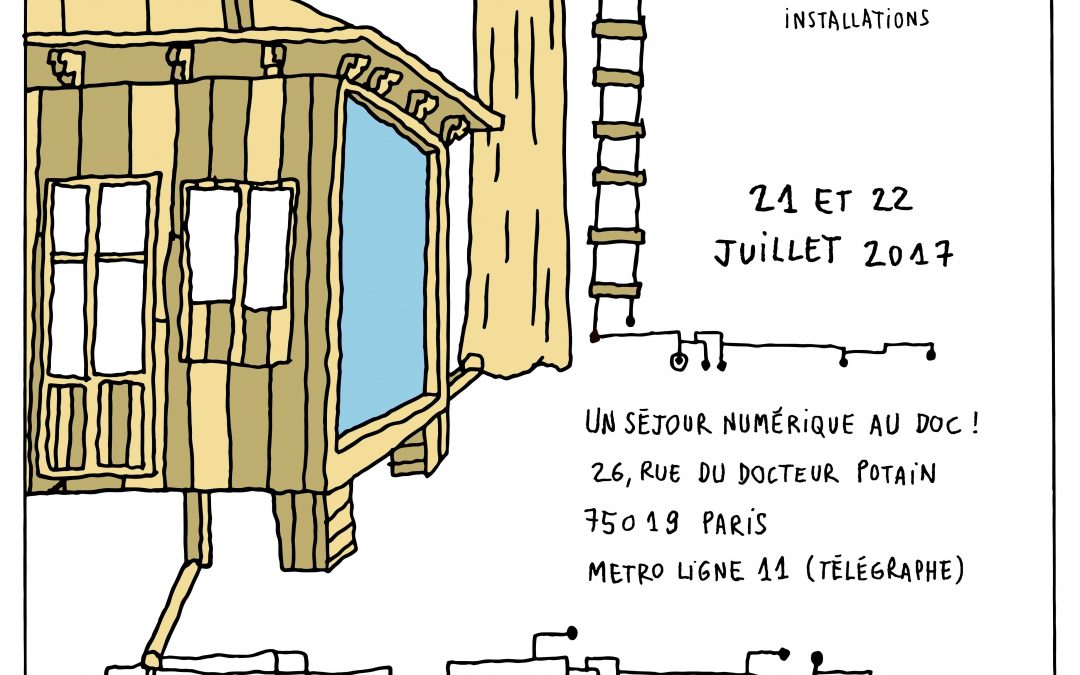 INSTALLATIONS
21 ET 22
JUILLET 2017
UN SÉJOUR NUMÉRIQUE AU DOC !
26, RUE DU DOCTEUR POTAIN
75019 PARIS
METRO LIGNE 11 (TÉLÉGRAPHE)